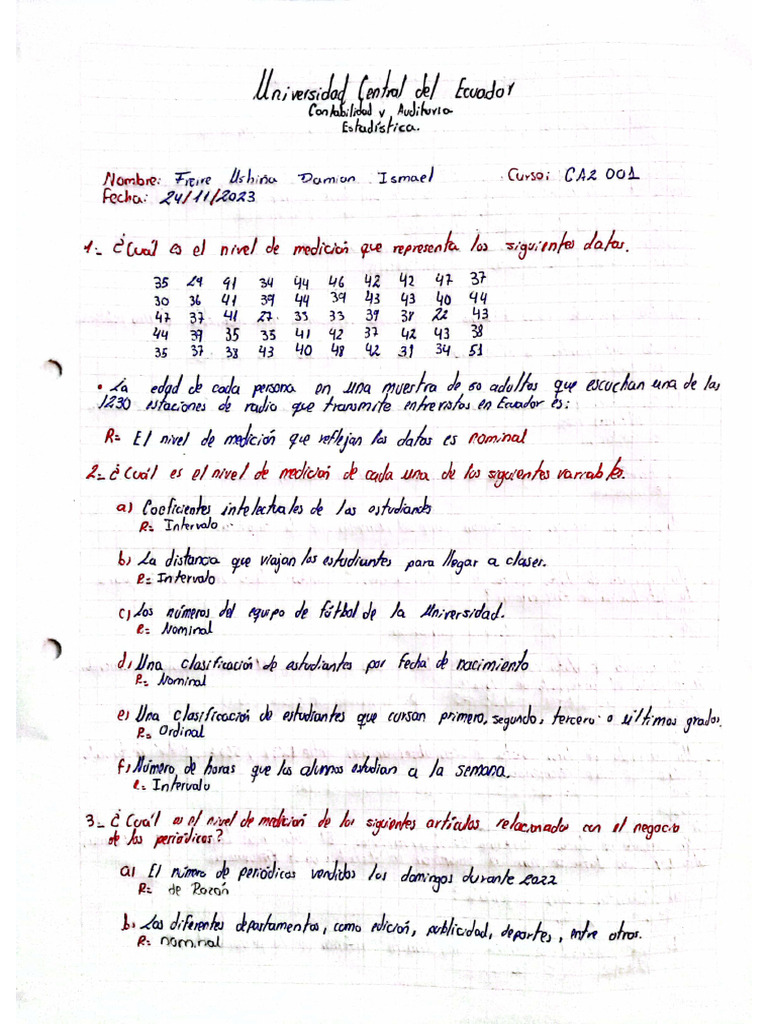 Universidad Central del Ecuador
Contabilidad y Auditoria
Estadística.
Nombre: Freire Ushiña Damian Ismael Curso: CA2 001
Fecha: 24/11/2023
1.- ¿Cuál es el nivel de medición que representa los siguientes datos.
35 29 91 34 44 46 42 42 47 37
30 36 41 39 44 39 43 43 40 44
47 37 41 27 33 33 39 38 22 43
44 39 35 35 41 42 37 42 43 38
35 37 38 43 40 48 42 31 34 51
• La edad de cada persona en una muestra de 50 adultos que escuchan una de las
1230 estaciones de radio que transmite entrevistas en Ecuador es:
R= El nivel de medición que reflejan los datos es nominal
2.- ¿Cuál es el nivel de medición de cada una de los siguientes variables.
a) Coeficientes intelectuales de los estudiandes
R= Intervalo
b) La distancia que viajan los estudiantes para llegar a clases.
R= Intervalo
c) Los números del equipo de fútbol de la Universidad.
R= Nominal
d) Una clasificación de estudiantes por fecha de nacimiento
R= Nominal
e) Una clasificación de estudiantes que cursan primero, segundo, tercero o últimos grados.
R= Ordinal
f) Número de horas que los alumnos estudian a la semana.
R= Intervalo
3.- ¿Cuál es el nivel de medición de los siguientes artículos relacionados con el negocio
de los periódicos?
a) El número de periódicos vendidos los domingos durante 2022
R= de Razón
b) Los diferentes departamentos, como edición, publicidad, deportes, entre otros.
R= nominal